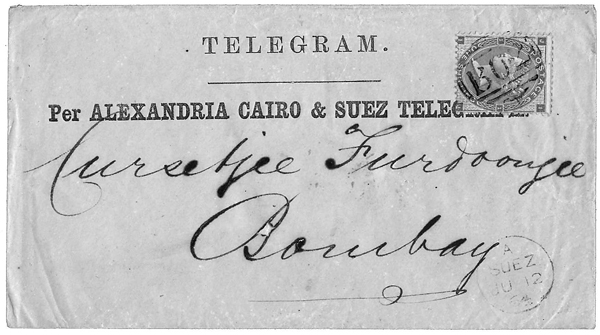 TELEGRAM.
Per ALEXANDRIA CAIRO & SUEZ
Cursetjee Furdoonjee
Bombay
A
SUEZ
JU 12